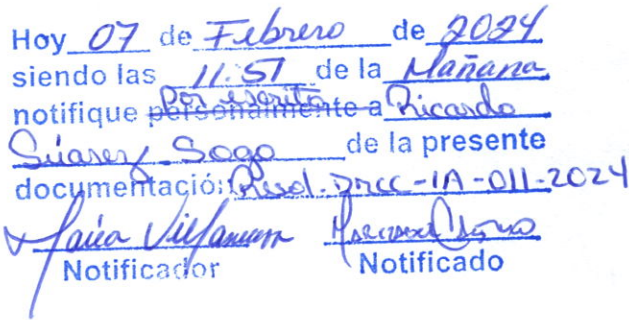 Hoy 07 de Febrero de 2024
siendo las 11:51 de la Mañana
notifique Por escrito personalmente a Ricardo
Súarez Sogo de la presente
documentación: Resol. DRCC-IA-011-2024
Notificador Notificado